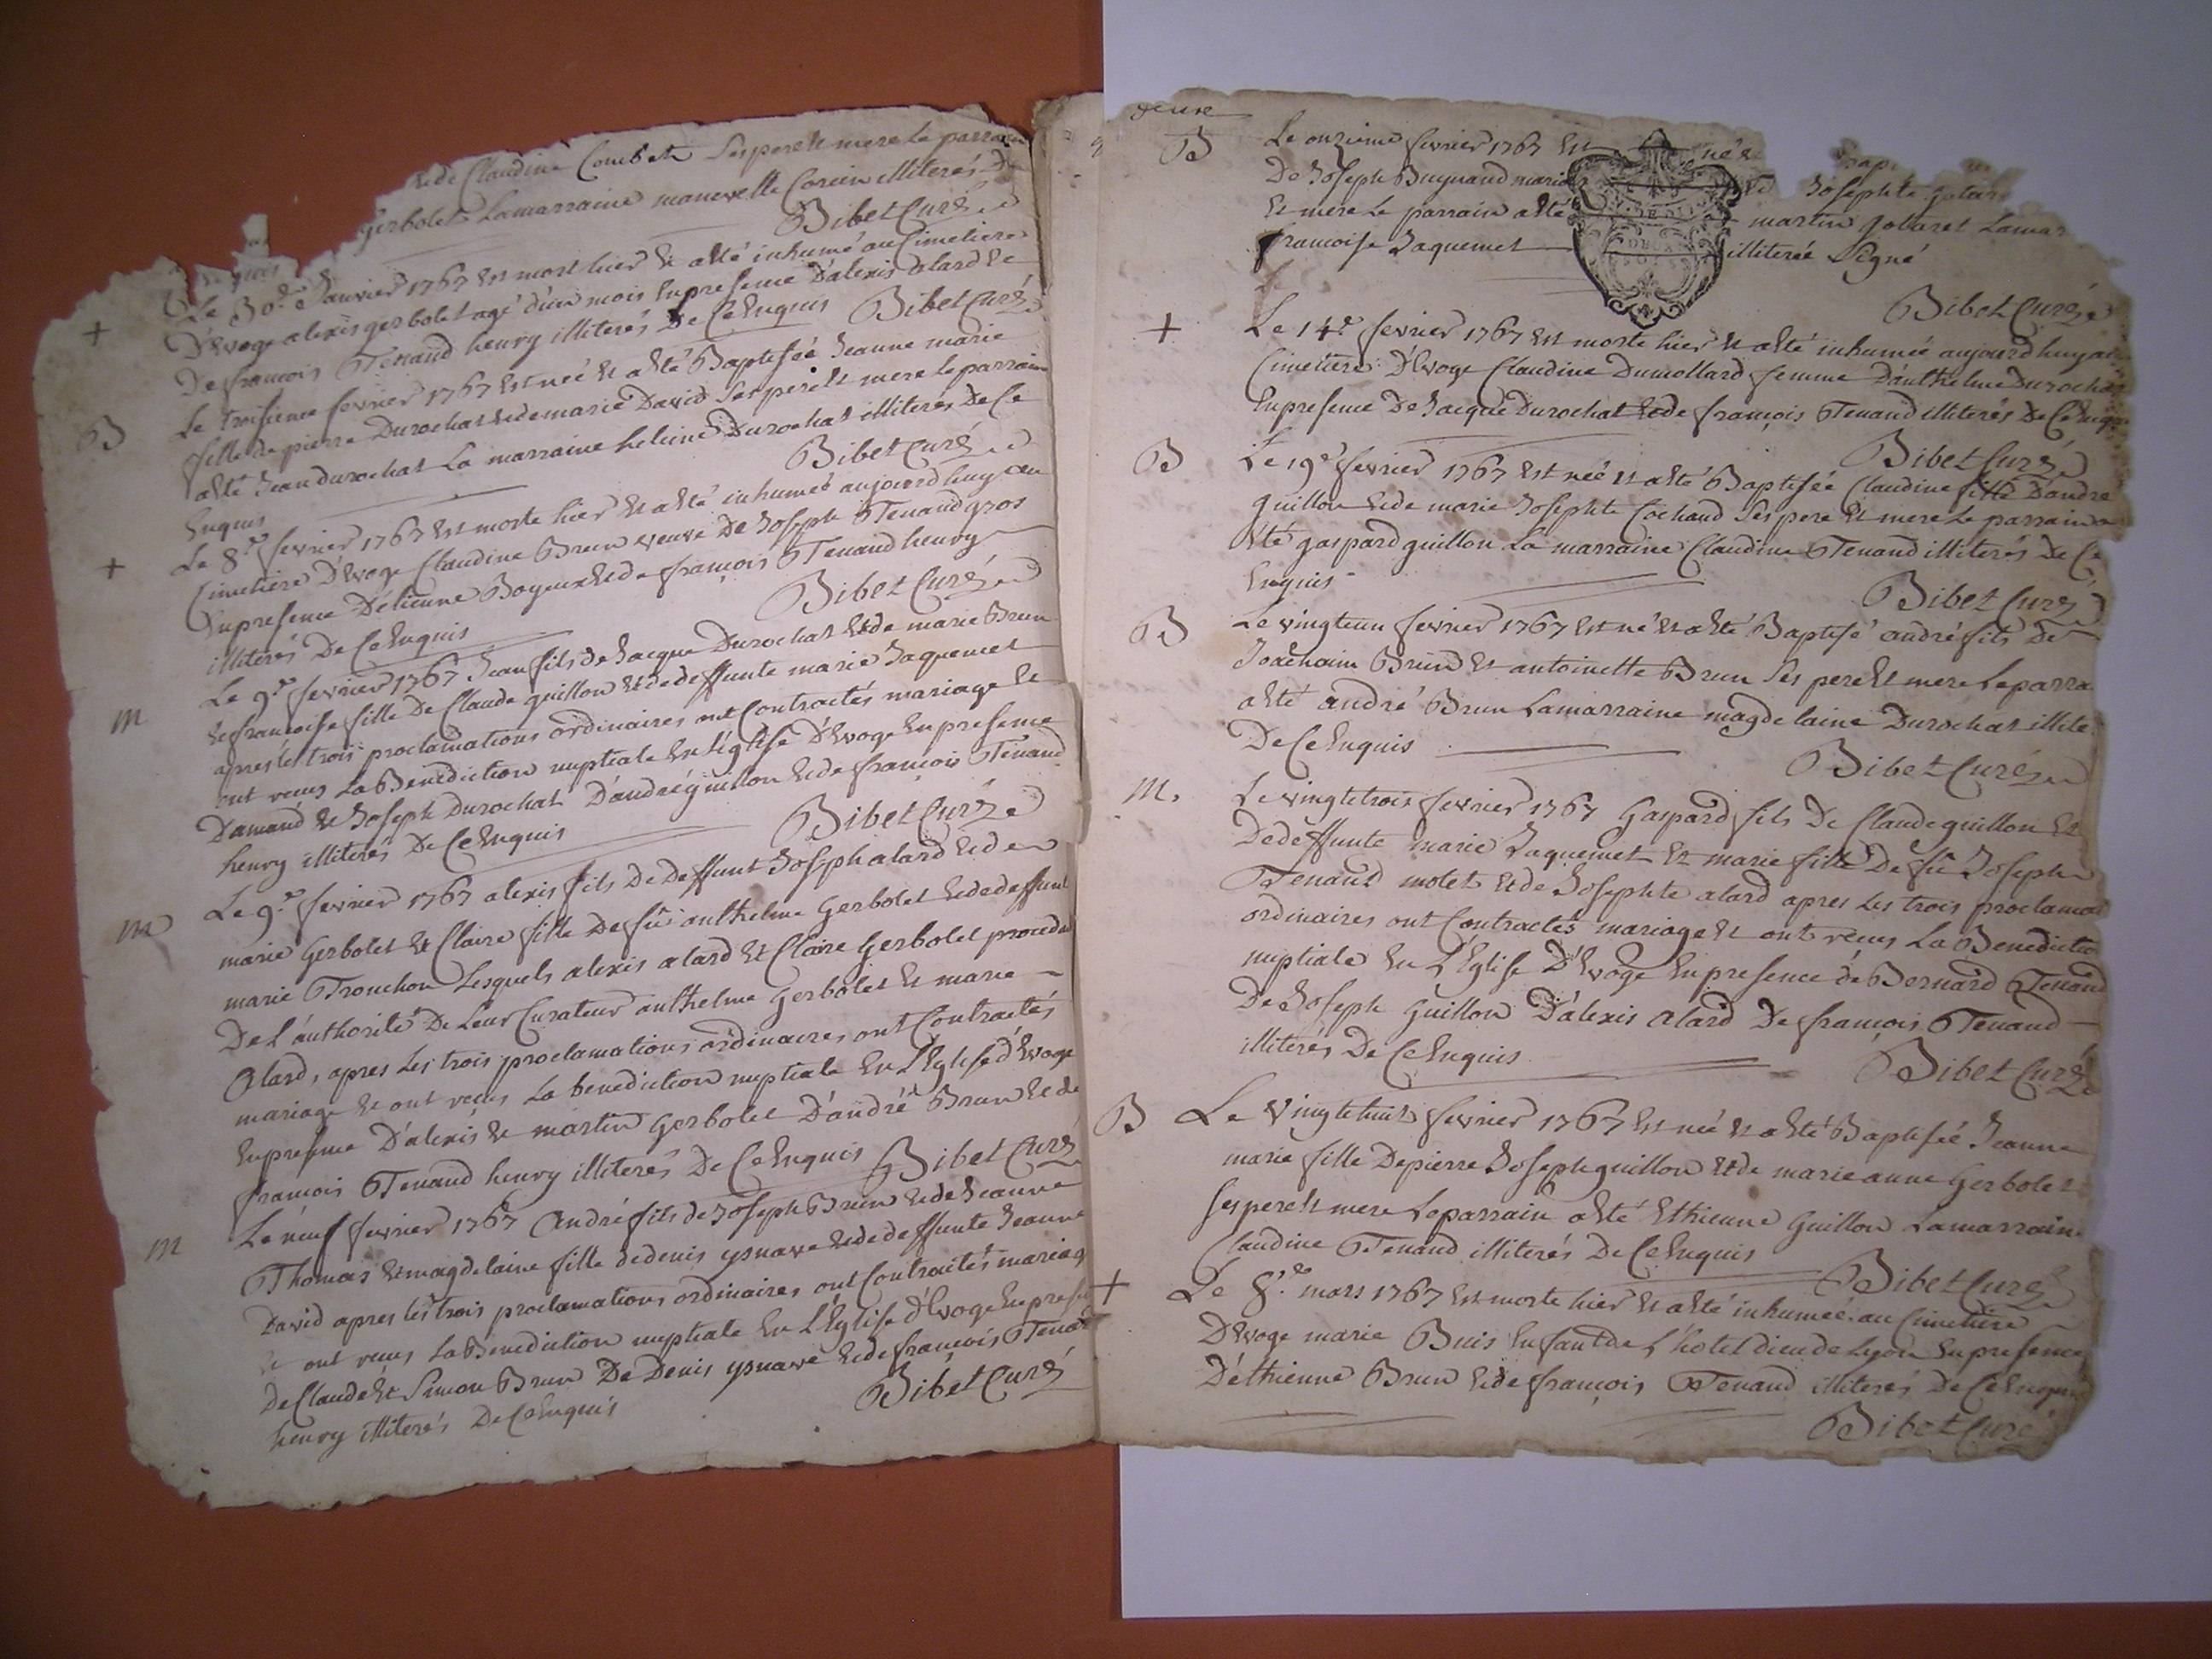 et de Claudine Combet ses pere et mere le parrain
Gerbolet Lamarraine manuelle illiterés De
Bibet Curé
+ Le 30e Janvier 1767 est mort hier et a Eté inhumé au Cimetiere
D'Evoge alexis gerbolet agé d'un mois En presence D'alexis alard et
De francois Tenand henry illiterés De Ce Enquis Bibet Curé
B Le troisieme fevrier 1767 est neé et a Eté Baptiseé Jeanne marie
fille de pierre Durochat et de marie David ses pere et mere le parrain
a Eté Jean durochat La marraine heleine Durochat illiterés De Ce
Enquis Bibet Curé
+ Le 8e fevrier 1767 est morte hier et a Eté inhumeé aujourd huy au
Cimetiere D'Evoge Claudine Brun veuve De Joseph Tenand gros
En presence D'étienne Boyeux et de françois Tenand henry
illiterés De Ce Enquis Bibet Curé
m Le 9e fevrier 1767 Jean fils de Jacque Durochat et de marie Brun
et francoise fille De Claude guillon et de deffunte marie Jaquemet
apres les trois proclamations ordinaires ont Contractés mariage et
ont recus La Benediction nuptiale En L'église D'Evoge En presence
D'amand et Joseph Durochat D'andré guillon et de françois Tenand
henry illiterés De Ce Enquis Bibet Curé
m Le 9e fevrier 1767 alexis fils De Deffunt Joseph alard et de
marie Gerbolet et Claire fille De fû anthelme Gerbolet et de deffunte
marie Tronchon Lesquels alexis alard et Claire Gerbolet procedant
De L'authorité De Leur Curateur anthelme Gerbolet et marie
Alard, apres Les trois proclamations ordinaires ont Contractés
mariage et ont reçus La benediction nuptiale En L'Eglise d'Evoge
En presence D'alexis et martin Gerbolet D'andré Brun et de
francois Tenand henry illiterés De Ce Enquis Bibet Curé
m Le neuf fevrier 1767 André fils de Joseph Brun et de Jeanne
Thomas et magdelaine fille de denis ysnave et de deffunte Jeanne
David apres les trois proclamations ordinaires ont Contractés mariag
et ont recus La Benediction nuptiale En L'Eglise d'Evoge En prese
de Claude et Simon Brun De Denis ysnave et de françois Tenand
henry illiterés De Ce Enquis Bibet Curé
deuxe
B Le onzieme fevrier 1767 est né et
De Joseph Buynand marie et Josephte
et mere Le parrain a Eté martin Lamar
francoise Jaquemet illitereé Signé
Bibet Curé
+ Le 14e fevrier 1767 est morte hier et a Eté inhumeé aujourd huy au
Cimetiere D'Evoge Claudine Dumollard femme D'anthelme Durochat
En presence De Jacque Durochat et de françois Tenand illiterés De Ce Enquis
Bibet Curé
B Le 19e fevrier 1767 est neé et a Eté Baptiseé Claudine fille D'andre
guillon et de marie Josephte Cochaud ses pere et mere Le parrain a
Eté gaspard guillon La marraine Claudine Tenand illiterés De Ce
Enquis Bibet Curé
B Le vingt un fevrier 1767 est né et a Eté Baptisé andré fils De
Joachain Brun et antoinette Brun ses pere et mere Le parra
a Eté andré Brun La marraine magdelaine Durochat illite
De Ce Enquis Bibet Curé
m. Le vingt trois fevrier 1767 Gaspard fils De Claude guillon et
De deffunte marie Jaquemet et marie fille De fû Joseph
Tenand molet et de Josephte alard apres Les trois proclamat
ordinaires ont Contractés mariage et ont recus La Benedictio
nuptiale En L'Eglise D'Evoge En presence de Bernard Tenand
De Joseph Guillon D'alexis Alard De françois Tenand
illiterés De Ce Enquis Bibet Curé
B Le vingt huit fevrier 1767 est neé et a Eté Baptiseé Jeanne
marie fille De pierre Joseph guillon et de marie anne Gerbolet
ses pere et mere Le parrain a Eté Ethienne Guillon La marraine
Claudine Tenand illiterés De Ce Enquis Bibet Curé
+ Le 8e mars 1767 est morte hier et a Eté inhumeé au Cimetiere
D'Evoge marie Buis Enfant de L'hotel dieu de Lyon En presence
D'éthienne Brun et de françois Tenand illiterés De Ce Enquis
Bibet Curé